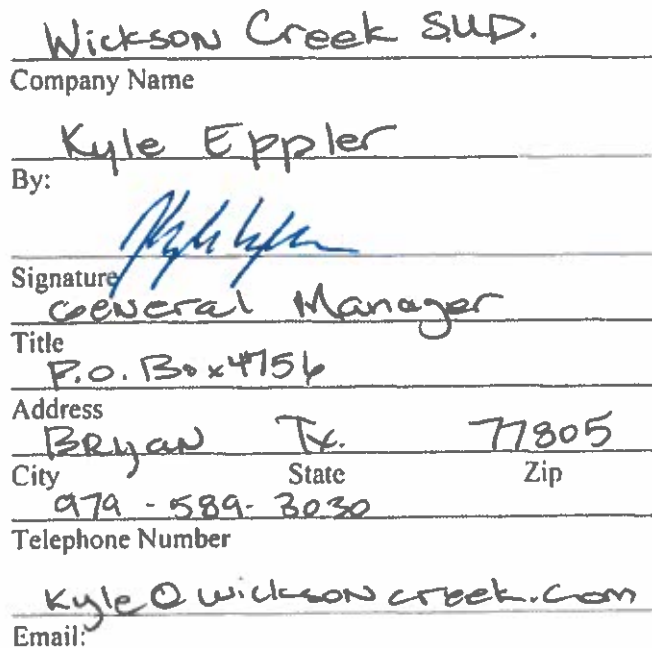 Wickson Creek S.U.D.
Company Name
Kyle Eppler
By:
Signature
General Manager
Title
P.O. Box 4756
Address
Bryan Tx. 77805
City State Zip
979-589-3030
Telephone Number
Kyle@wicksoncreek.com
Email: